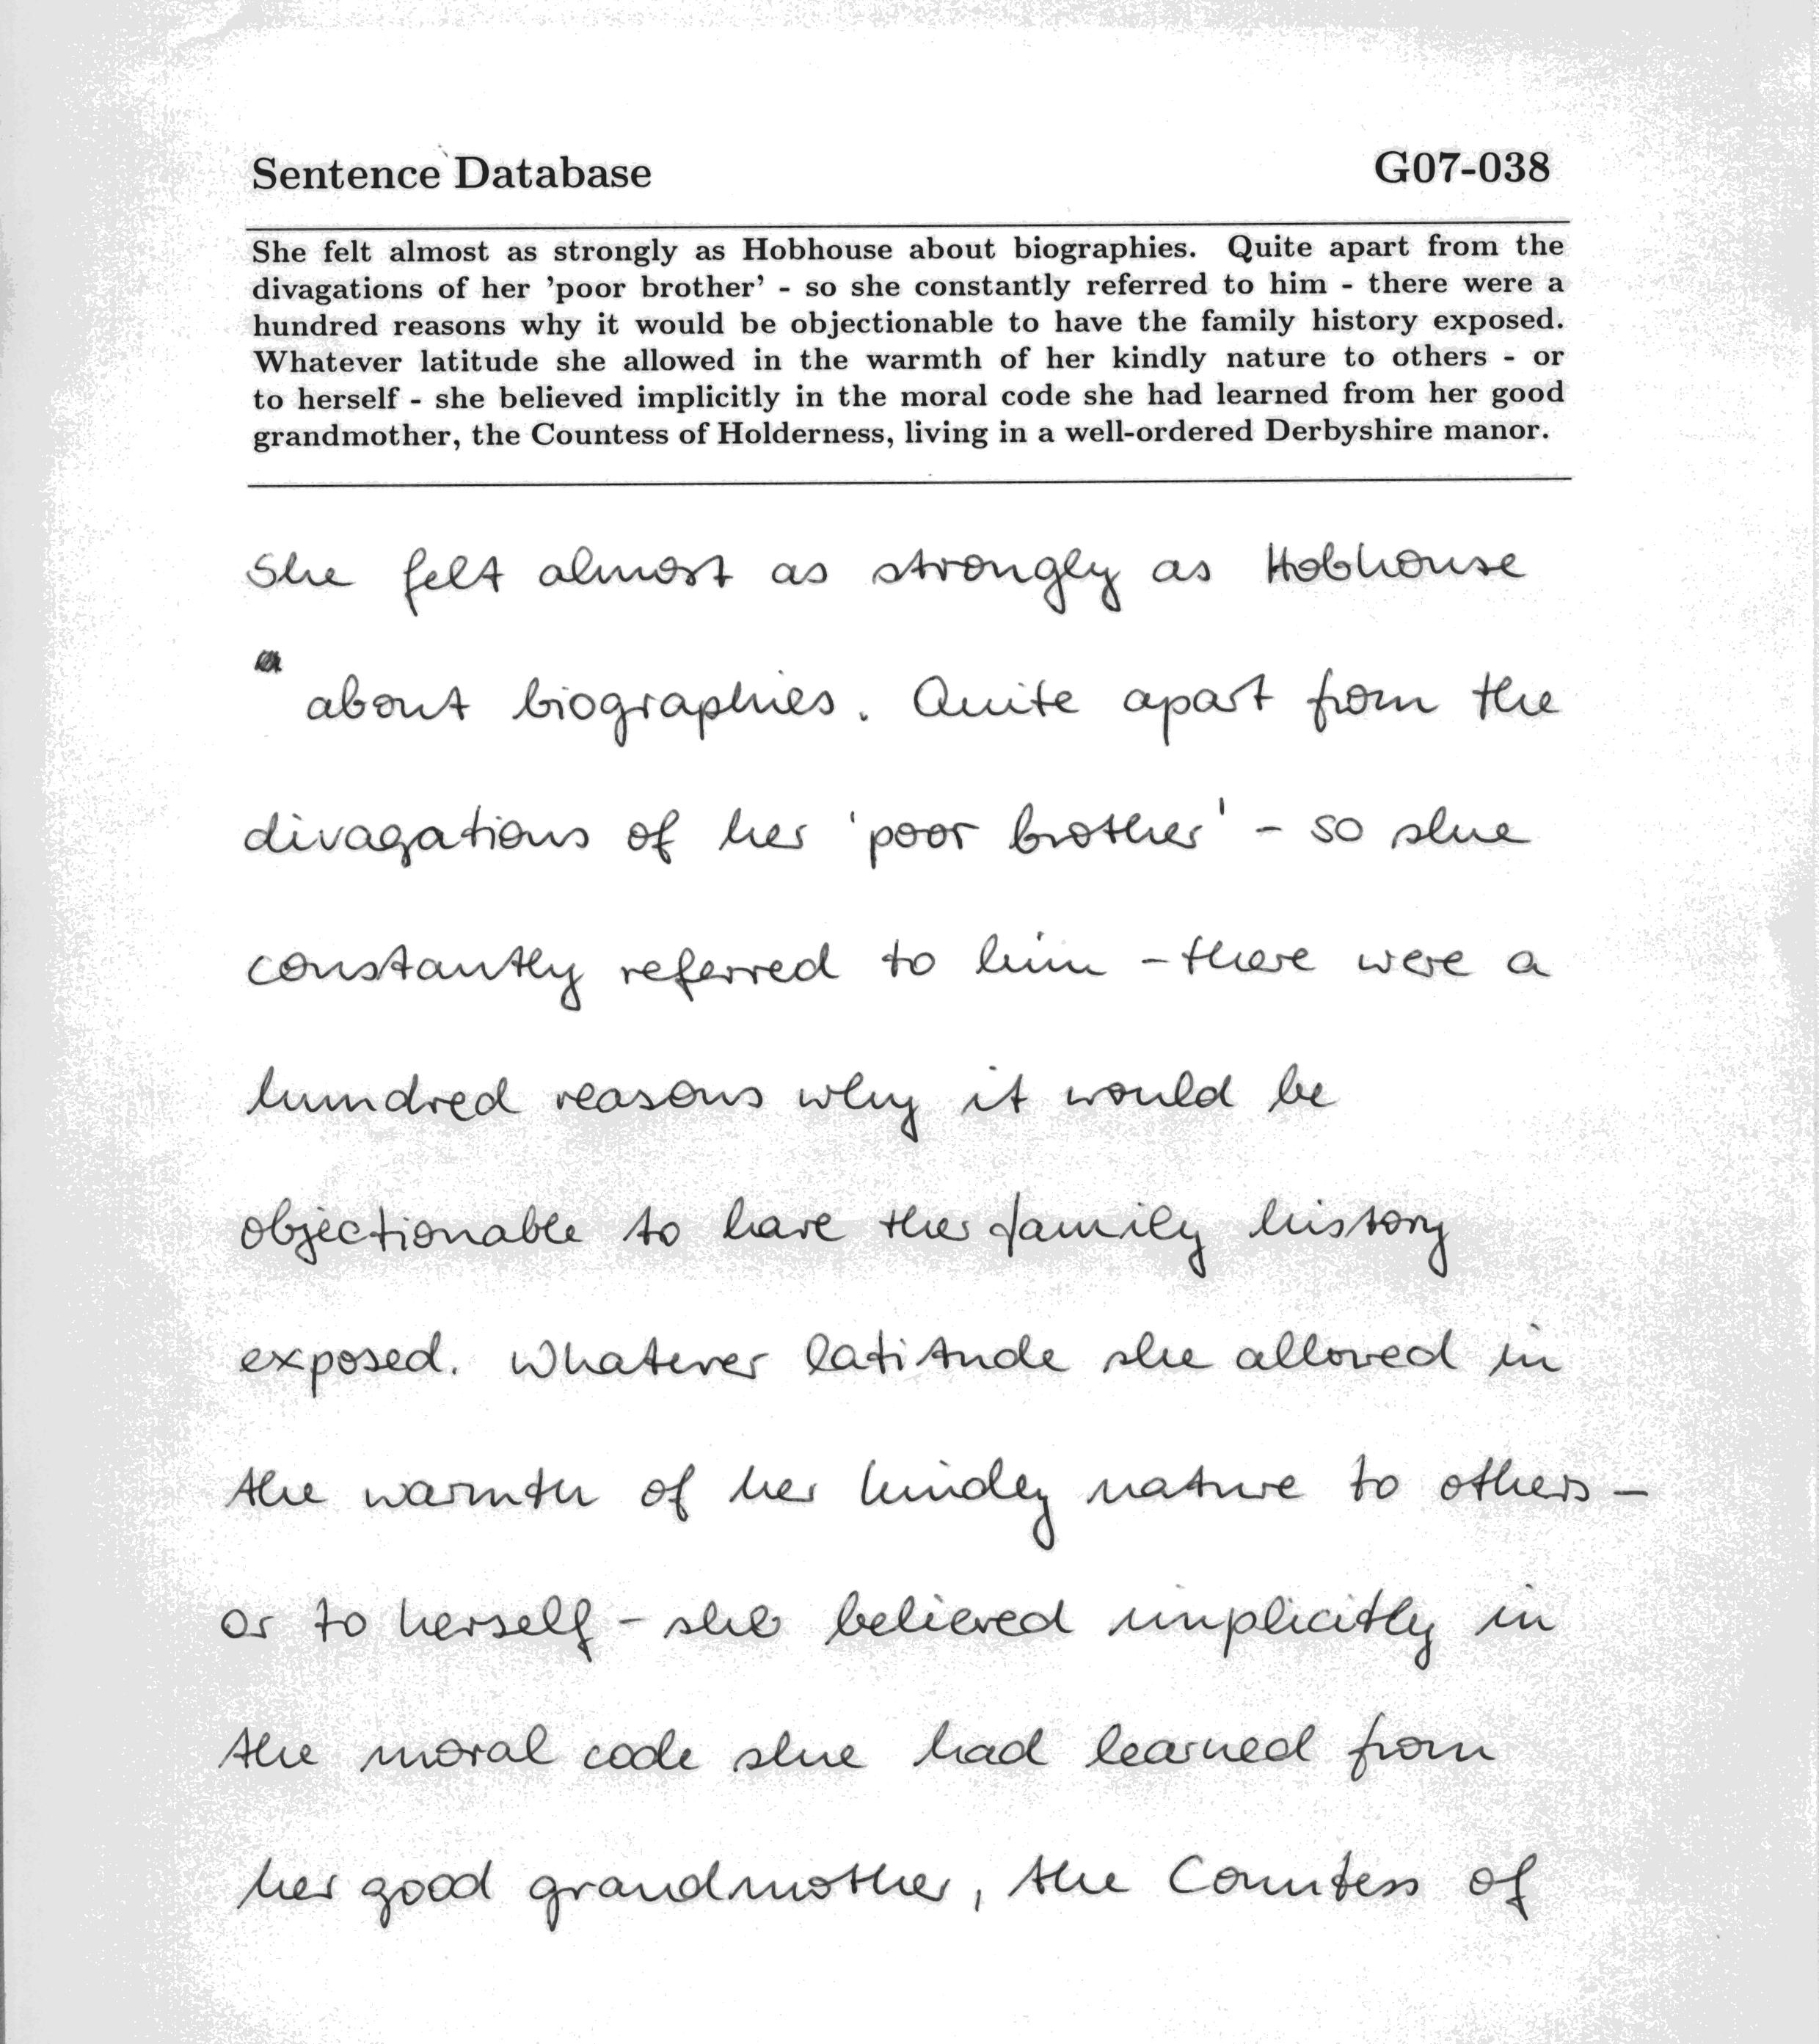 Sentence Database G07-038
She felt almost as strongly as Hobhouse about biographies. Quite apart from the
divagations of her 'poor brother' - so she constantly referred to him - there were a
hundred reasons why it would be objectionable to have the family history exposed.
Whatever latitude she allowed in the warmth of her kindly nature to others - or
to herself - she believed implicitly in the moral code she had learned from her good
grandmother, the Countess of Holderness, living in a well-ordered Derbyshire manor.
She felt almost as strongly as Hobhouse
about biographies. Quite apart from the
divagations of her 'poor brother' - so she
constantly referred to him - there were a
hundred reasons why it would be
objectionable to have the family history
exposed. Whatever latitude she allowed in
the warmth of her kindly nature to others -
or to herself - she believed implicitly in
the moral code she had learned from
her good grandmother, the Countess of